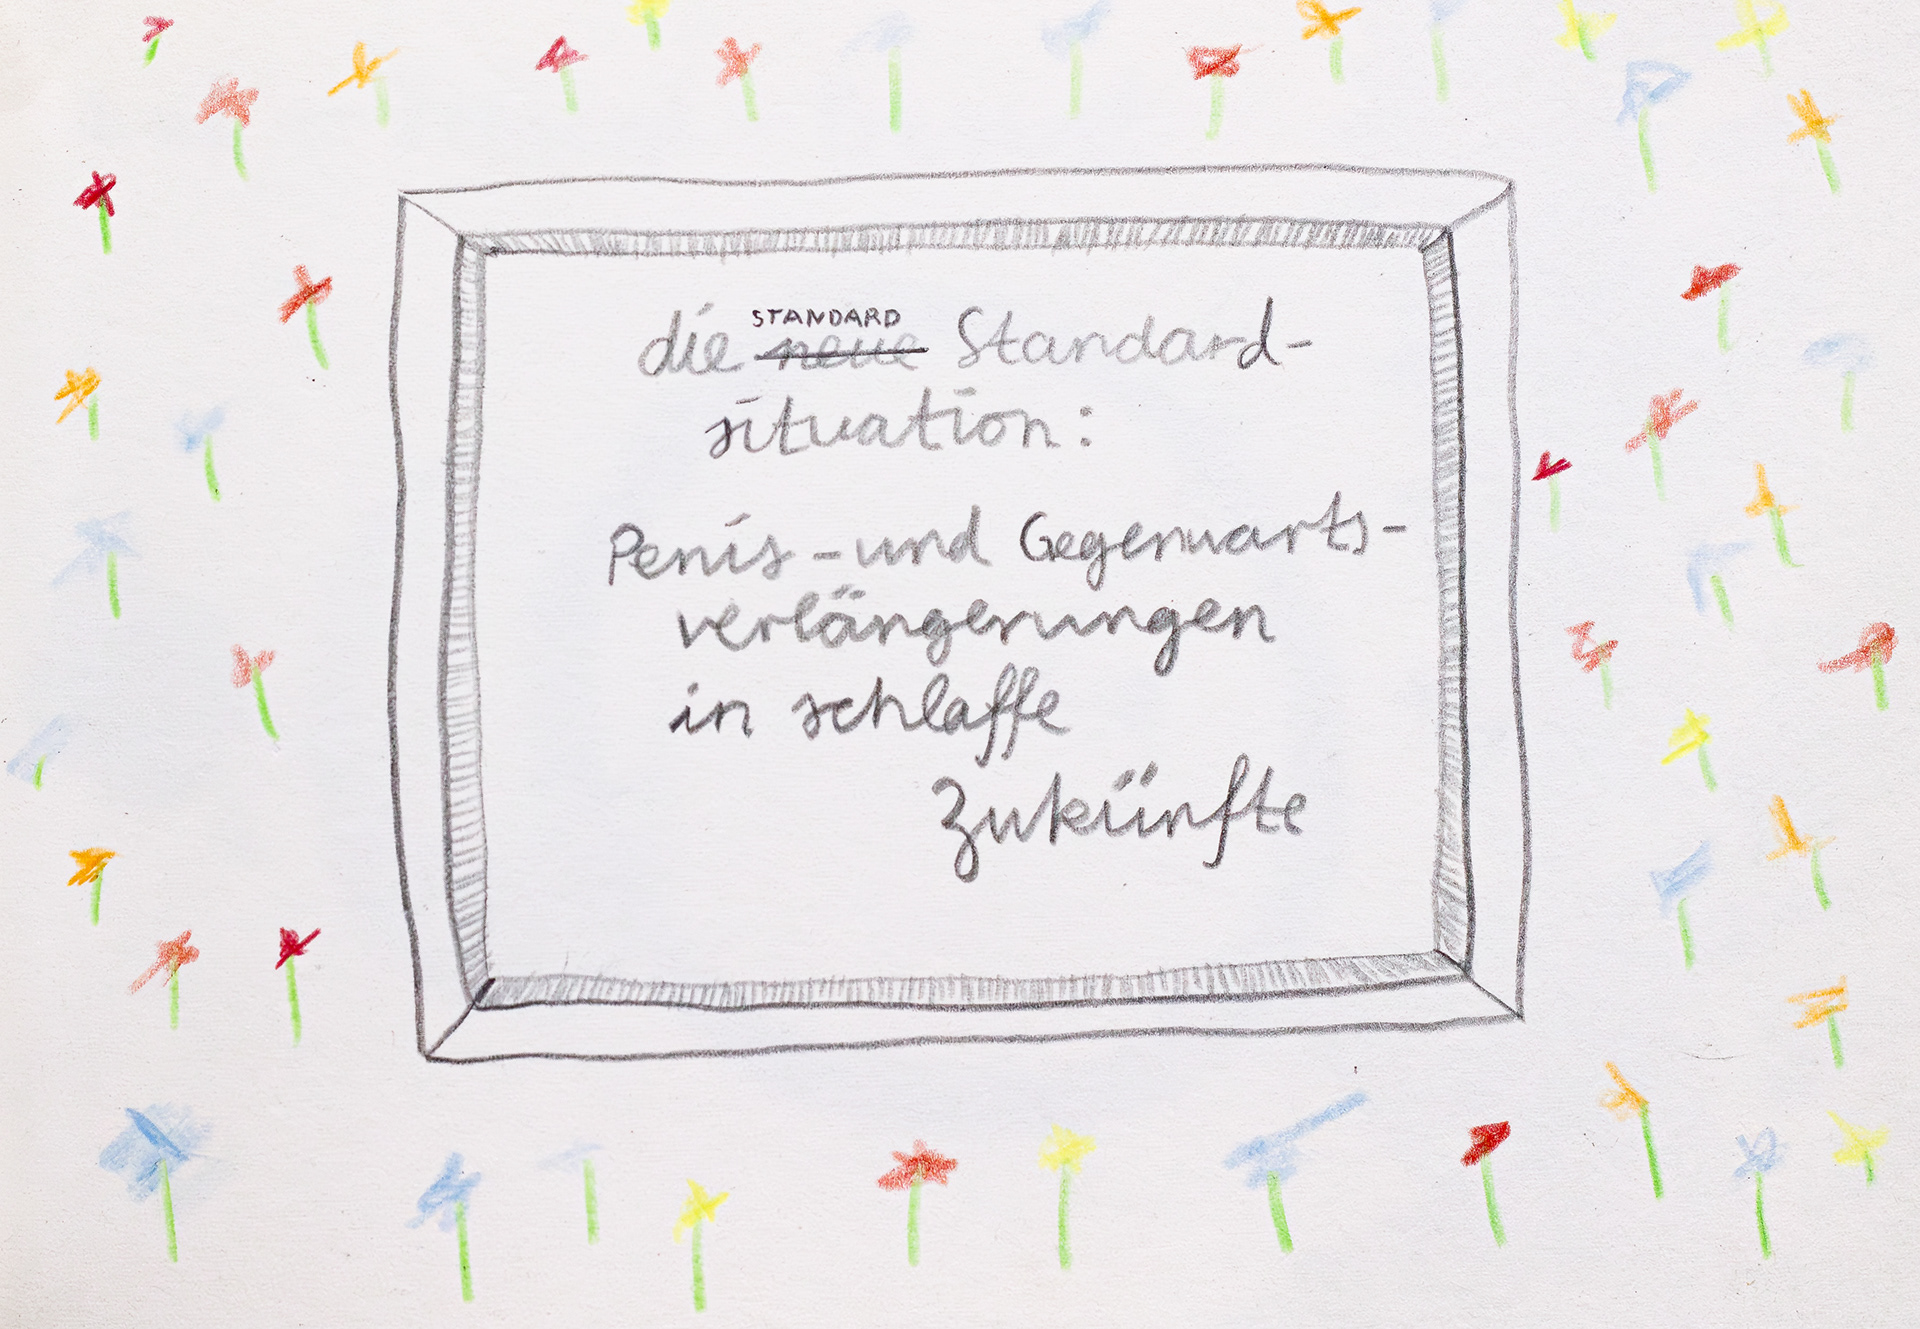 die STANDARD neue Standard-
situation:
Penis-und Gegenwarts-
verlängerungen
in schlaffe
Zukünfte